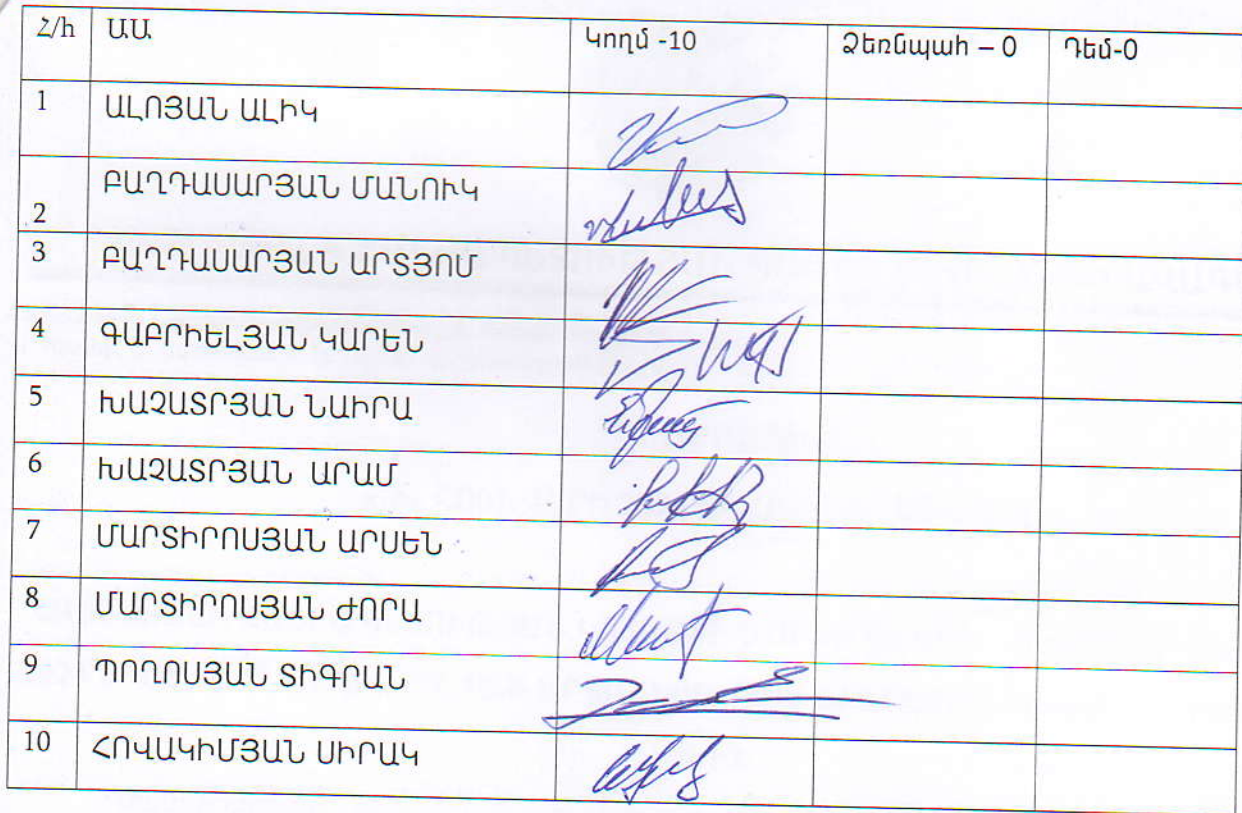 Հ/հ ԱԱ Կողմ -10 Ձեռնպահ – 0 Դեմ-0
1 ԱԼՈՅԱՆ ԱԼԻԿ
2 ԲԱՂԴԱՍԱՐՅԱՆ ՄԱՆՈՒԿ
3 ԲԱՂԴԱՍԱՐՅԱՆ ԱՐՏՅՈՄ
4 ԳԱԲՐԻԵԼՅԱՆ ԿԱՐԵՆ
5 ԽԱՉԱՏՐՅԱՆ ՆԱԻՐԱ
6 ԽԱՉԱՏՐՅԱՆ ԱՐԱՄ
7 ՄԱՐՏԻՐՈՍՅԱՆ ԱՐՍԵՆ
8 ՄԱՐՏԻՐՈՍՅԱՆ ԺՈՐԱ
9 ՊՈՂՈՍՅԱՆ ՏԻԳՐԱՆ
10 ՀՈՎԱԿԻՄՅԱՆ ՍԻՐԱԿ